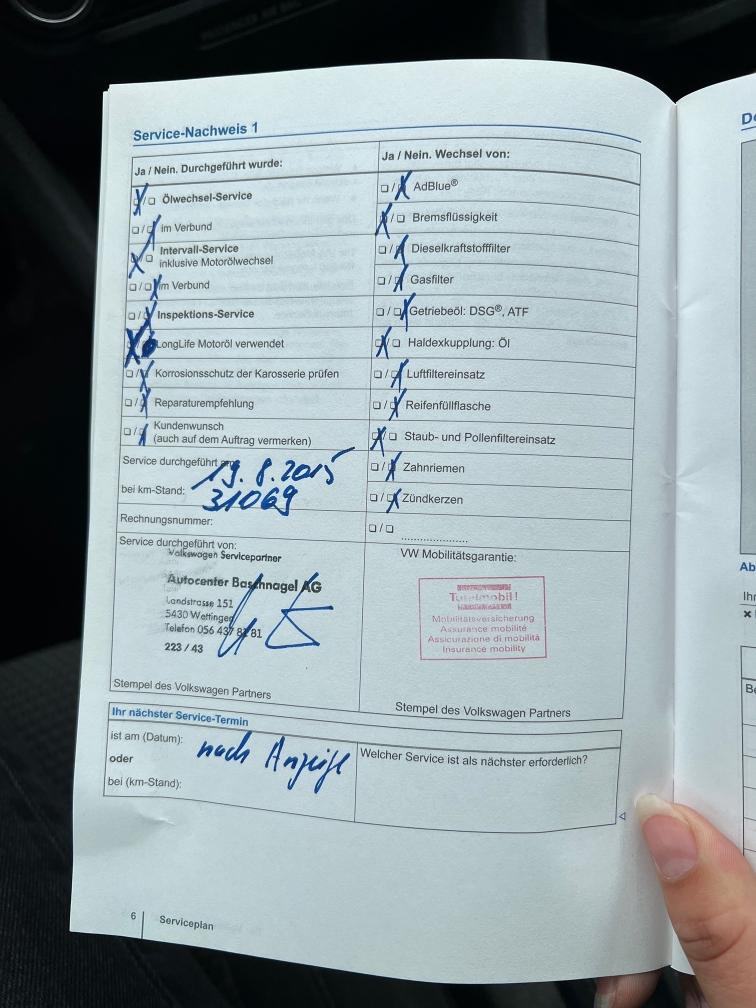 Service-Nachweis 1
Ja / Nein. Durchgeführt wurde:
Ölwechsel-Service
im Verbund
Intervall-Service
inklusive Motorölwechsel
im Verbund
Inspektions-Service
LongLife Motoröl verwendet
Korrosionsschutz der Karosserie prüfen
Reparaturempfehlung
Kundenwunsch
(auch auf dem Auftrag vermerken)
Service durchgeführt am: 19.8.2015
bei km-Stand: 31069
Rechnungsnummer:
Service durchgeführt von:
Volkswagen Servicepartner
Autocenter Baschnagel AG
Landstrasse 151
5430 Wettingen
Telefon 056 437 81 81
223 / 43
Stempel des Volkswagen Partners
Ja / Nein. Wechsel von:
AdBlue®
Bremsflüssigkeit
Dieselkraftstofffilter
Gasfilter
Getriebeöl: DSG®, ATF
Haldexkupplung: Öl
Luftfiltereinsatz
Reifenfüllflasche
Staub- und Pollenfiltereinsatz
Zahnriemen
Zündkerzen
VW Mobilitätsgarantie:
Totalmobil!
Mobilitätsversicherung
Assurance mobilité
Assicurazione di mobilità
Insurance mobility
Stempel des Volkswagen Partners
Ihr nächster Service-Termin
ist am (Datum): nach Anzeige
oder
bei (km-Stand):
Welcher Service ist als nächster erforderlich?
6 Serviceplan